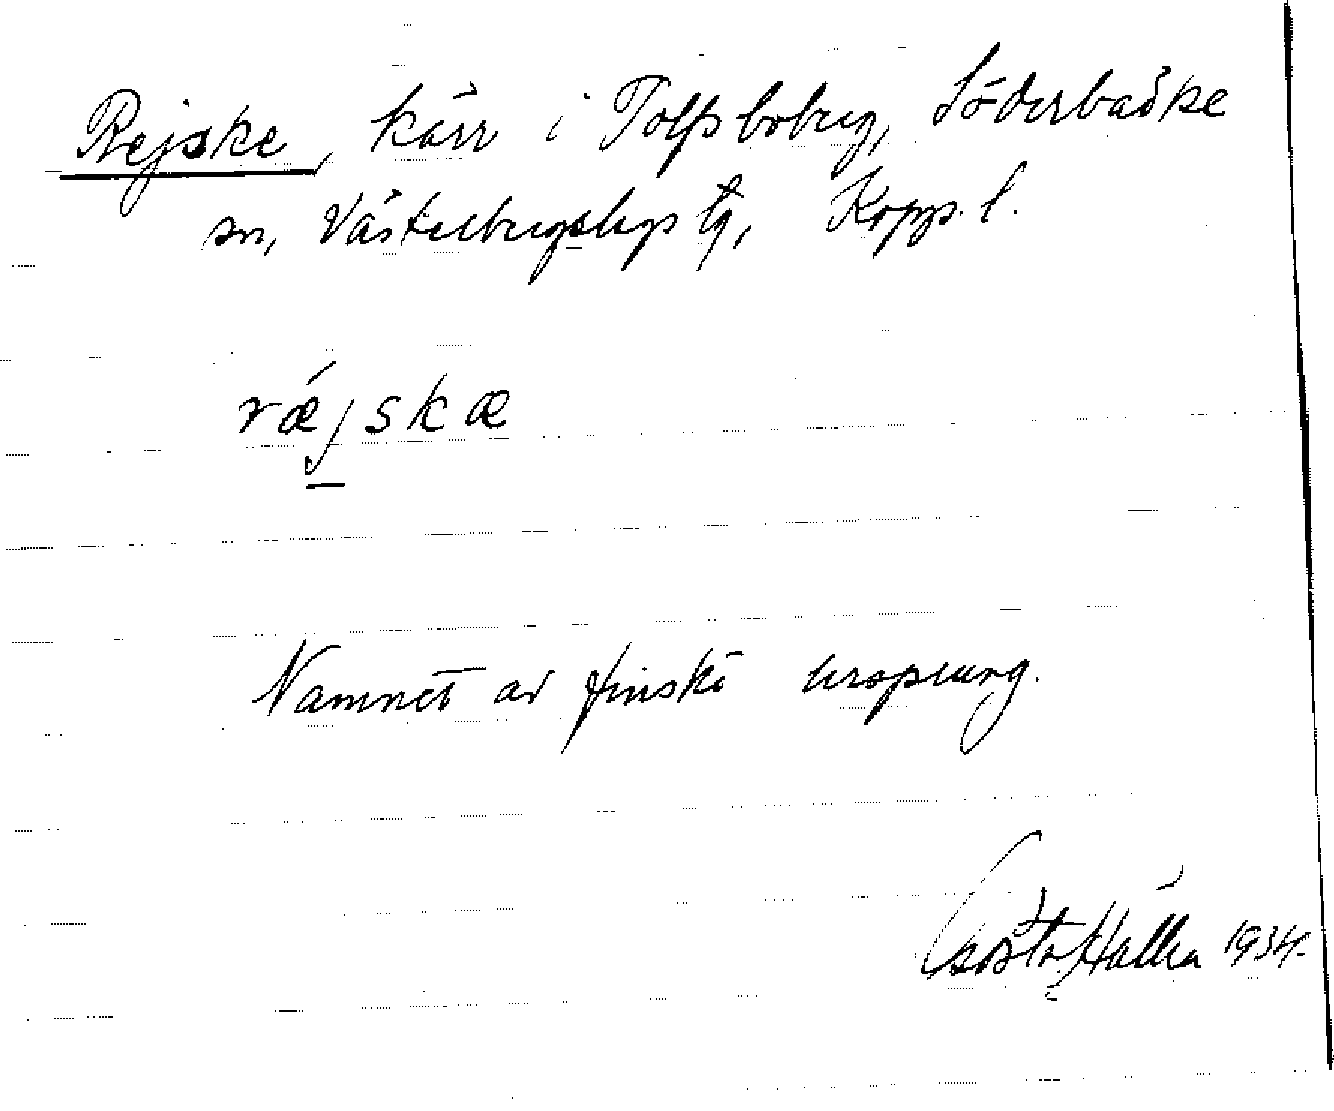 Rejske, kärr i Tolfsbobrg, Söderbärke
sn, Västerbergslags tg, Kopp. l.
ræ´jskæ
Namnet av finskt ursprung.
Gösta Hålla 1934.